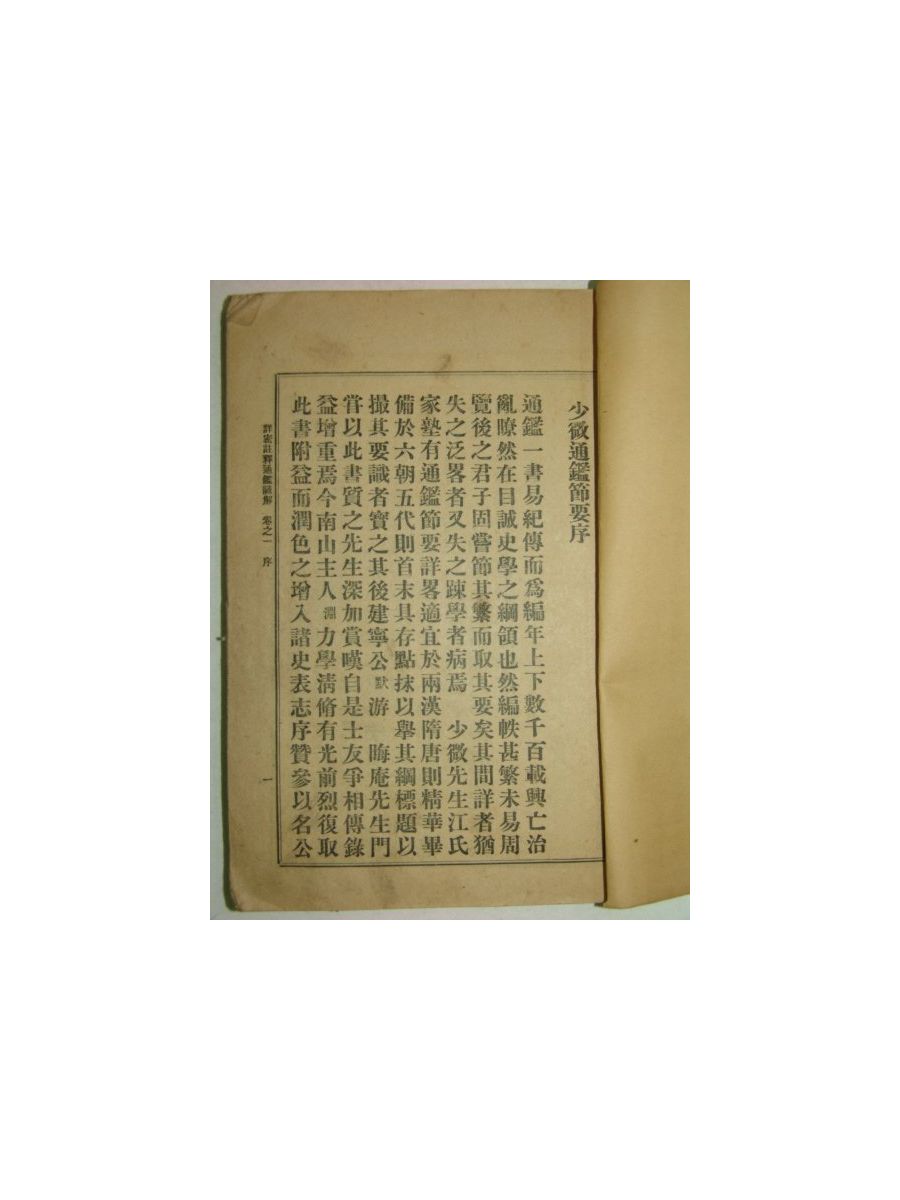 少微通鑑節要序
通鑑一書易紀傳而爲編年上下數千百載興亡治
亂瞭然在目誠史學之綱領也然編帙甚繁未易周
覽後之君子固嘗節其繁而取其要矣其間詳者猶
失之泛畧者又失之踈學者病焉 少微先生江氏
家塾有通鑑節要詳畧適宜於兩漢隋唐則精華畢
備於六朝五代則首末具存點抹以舉其綱標題以
撮其要識者寶之其後建寧公默游 晦庵先生門
甞以此書質之先生深加賞嘆自是士友爭相傳錄
益增重焉今南山主人淵力學清脩有光前烈復取
此書附益而潤色之增入諸史表志序贊參以名公
詳密註釋通鑑諺解 卷之一 序 一